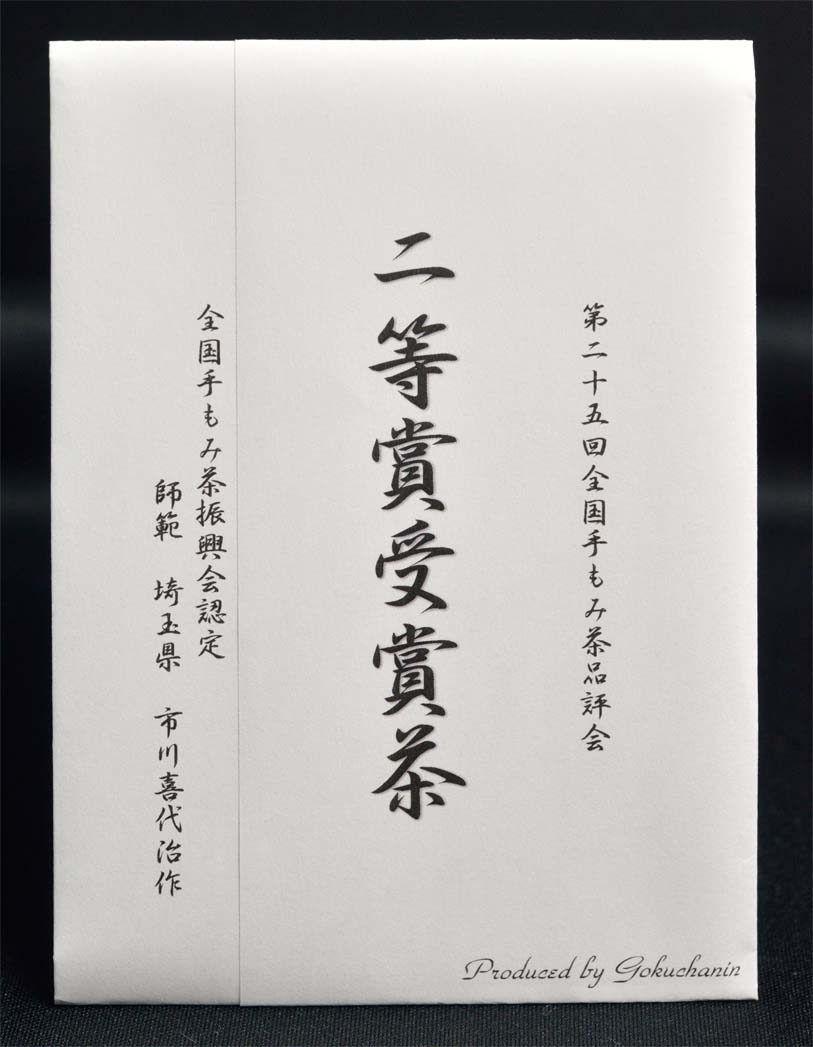 第二十五回全国手もみ茶品評会
二等賞受賞茶
全国手もみ茶振興会認定
師範　埼玉県　市川喜代治作
Produced by Gokuchanin